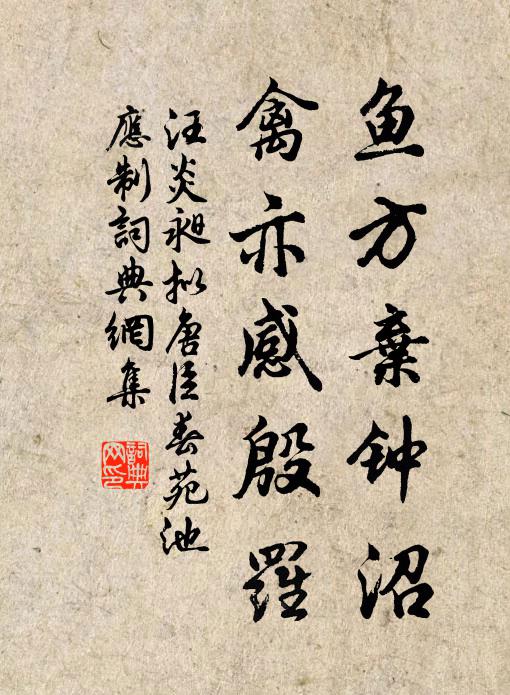 鱼方棄钟沼
禽亦感殷羅
汪炎昶拟唐臣春苑池
應制詞典網集
詞典網印